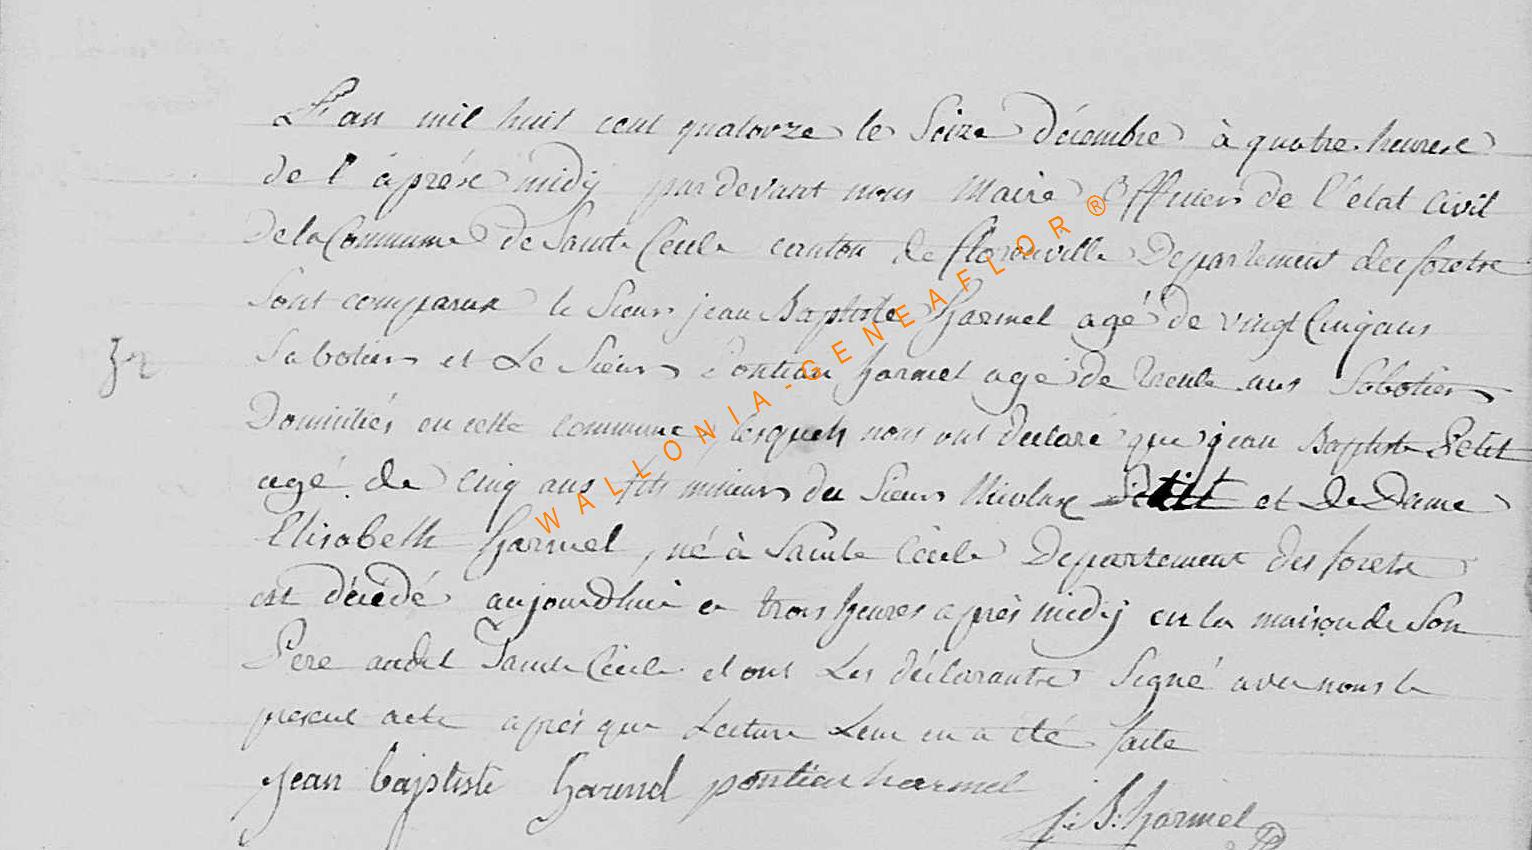 L'an mil huit cent quatorze le Seize décembre à quatre heures
de l'áprés midÿ pardevant nous Maire Officier de l'état Civil
de la Commune de Sainte Cécile canton de florenville Departement des foretse
Sont comparus le Sieur jean Baptiste harmel agé de vingt Cinq ans
Sabotier et Le Sieur Pontian harmel agé de trente ans Sabotier
Domiciliés en cette commune, lesquels nous ont declaré que jean Baptiste Petit
agé de Cinq ans fils mineur du Sieur Nicolas Petit et de Dame
Elisabeth harmel, né à Sainte Cécile Departement des forets
est décédé aujourdhui a trois heures aprés midÿ en la maison de Son
Pere audit Sainte Cécile et ont Les déclarants Signé avec nous le
present acte aprés que Lecture Leur en a été faite
jean baptiste harmel pontien harmel
j: B: harmel
32
WALLONIA-GENEAFLOR®